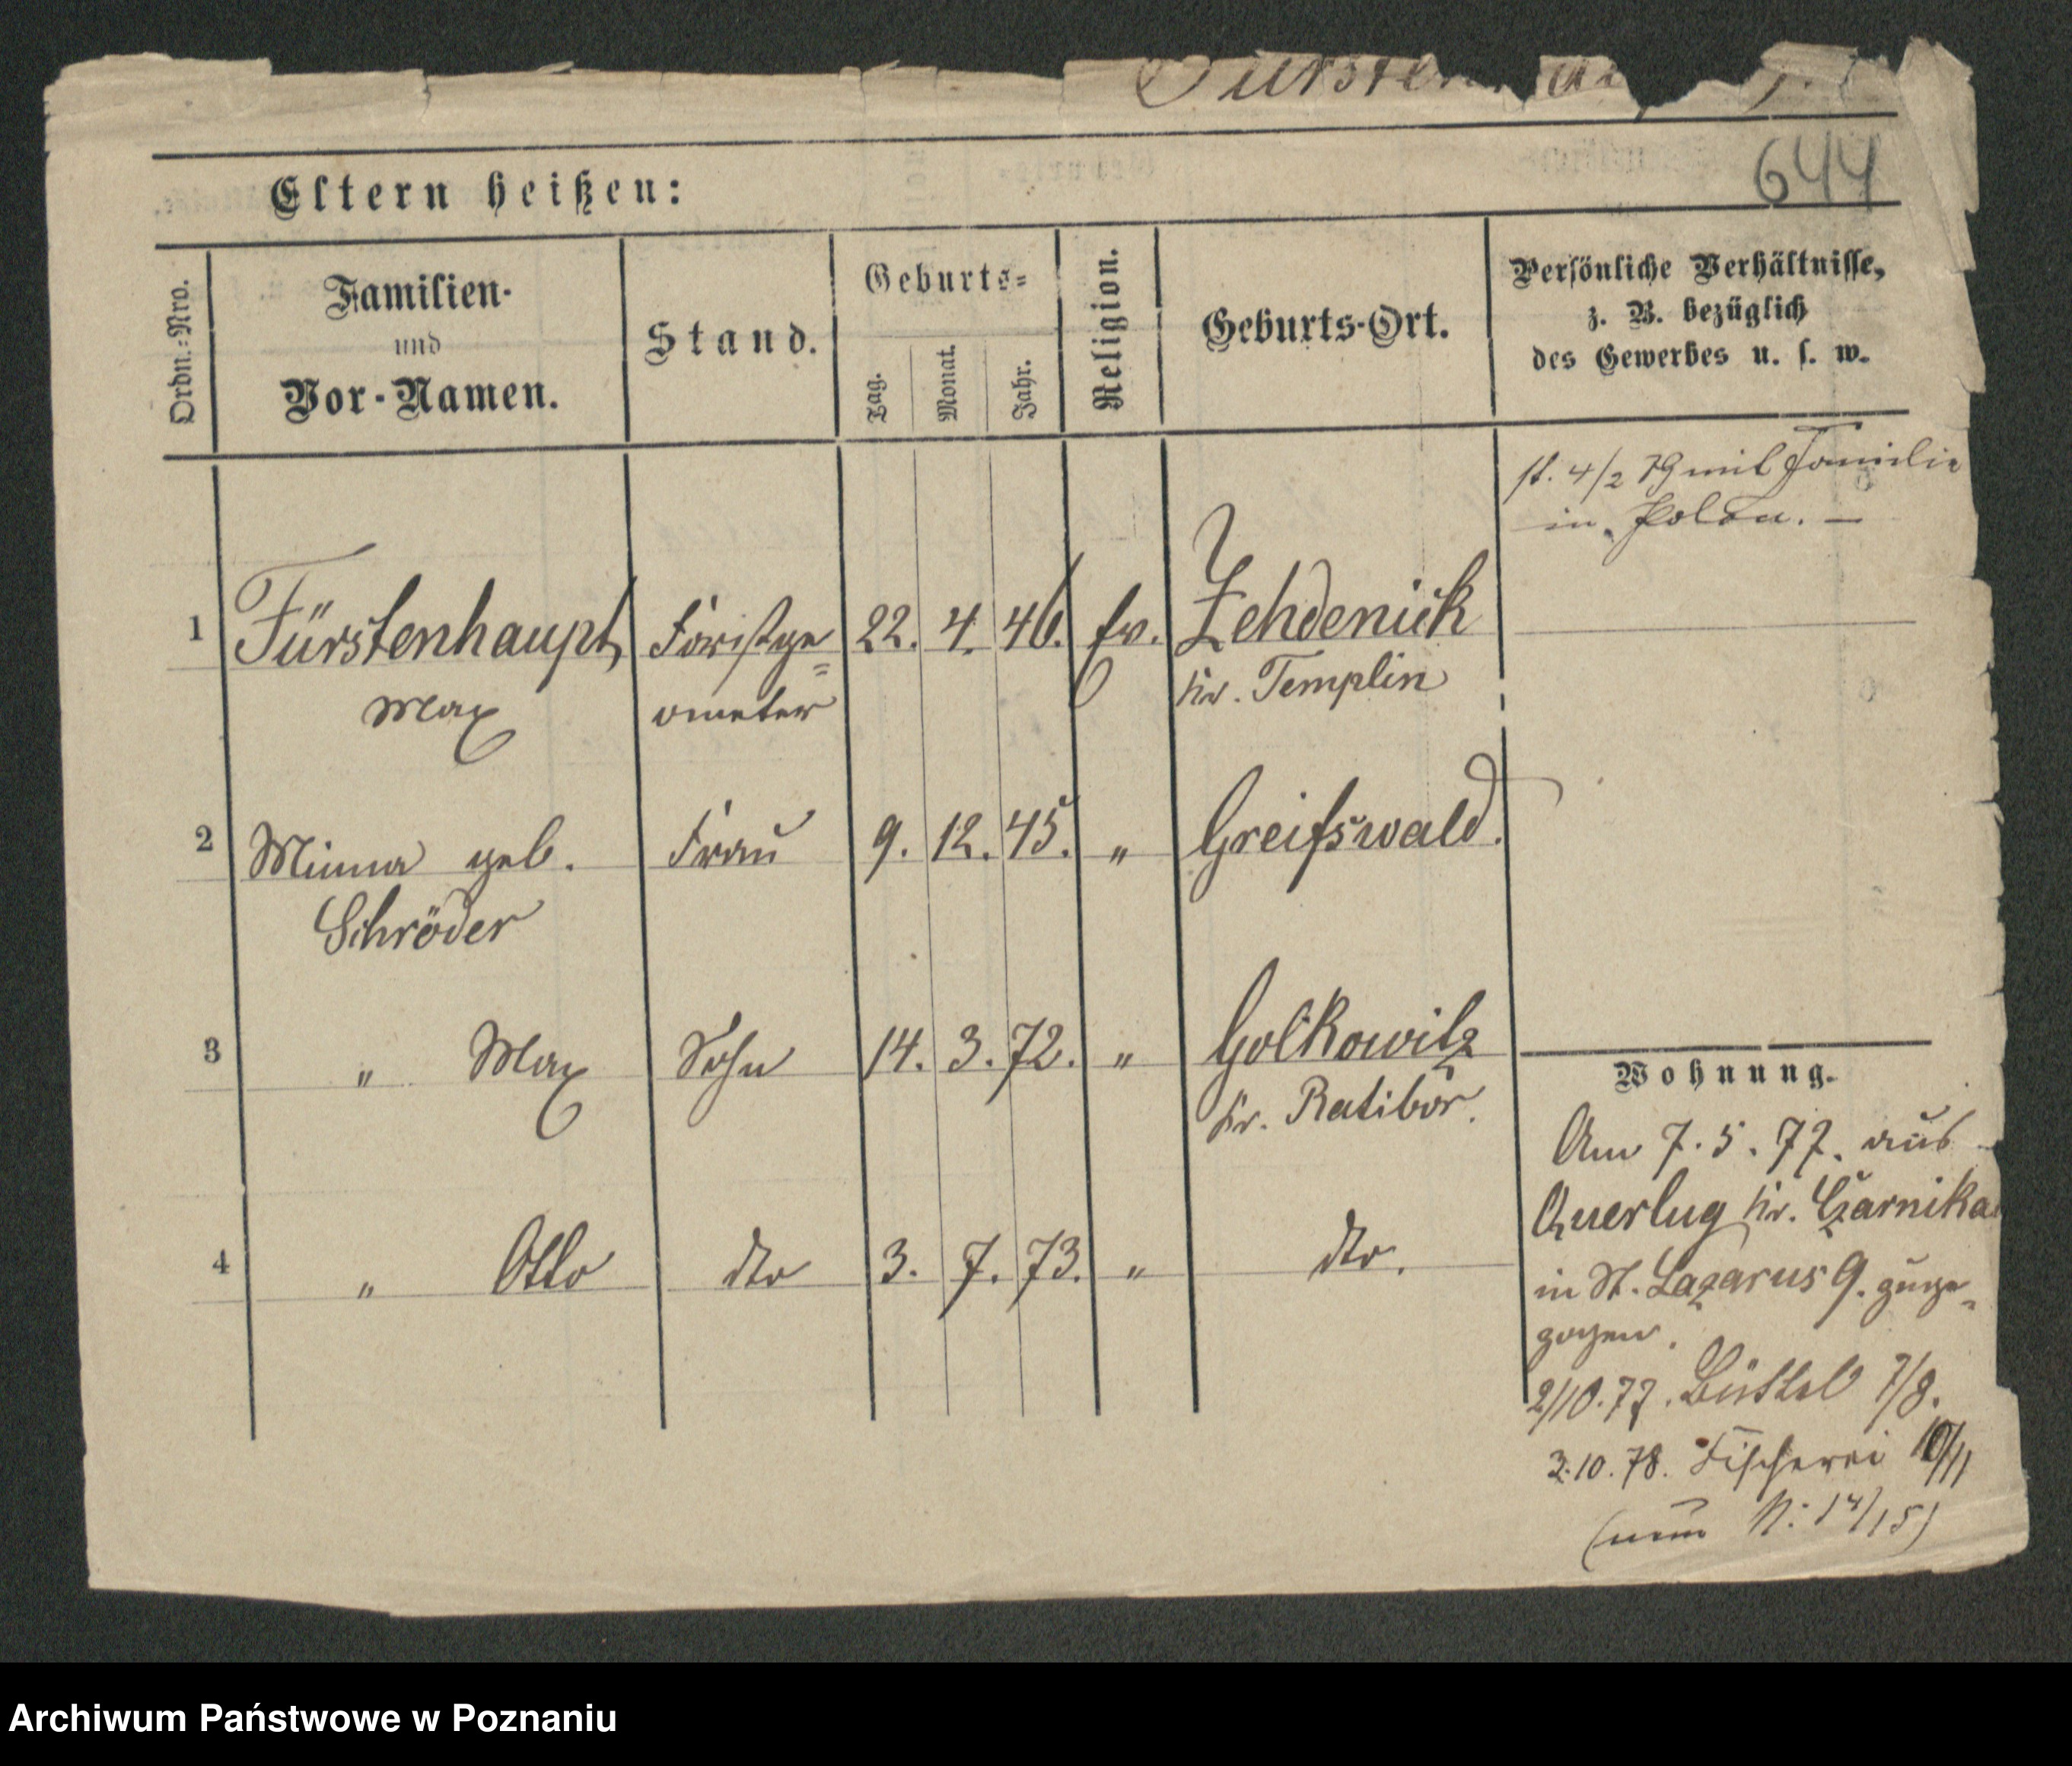 644
Eltern heißen:
Ordn.-Nro.
Familien-
und
Vor-Namen.
Stand.
Geburts-
Tag.
Monat.
Jahr.
Religion.
Geburts-Ort.
Persönliche Verhältnisse,
z. B. bezüglich
des Gewerbes u. s. w.
4/2 79 mit Familie
in
1 Fürstenhaupt, Forstge= 22. 4. 46. ev. Zehdenick
Max ometer Kr. Templin
2 Minna geb. Frau 9. 12. 45. " Greifswald.
Schröder
3 " Max Sohn 14. 3. 72. " Golkowitz
Kr. Ratibor.
4 " Otto dto 3. 7. 73. " dto.
Wohnung.
Am 7. 5. 77. aus
Querlug Kr. Czarnikau
in St. Lazarus 9. zuge-
zogen.
2/10. 77. Büttel 7/8.
3.10.78. Fischerei 10/11
(nun N: 14/15)
Archiwum Państwowe w Poznaniu